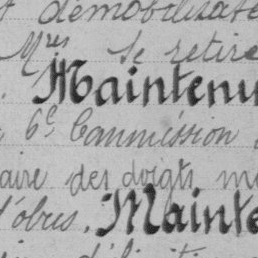 démobilisate
Myres se retire
Maintenu
6e Commission
aire des doigts m
d'obus. Mainte